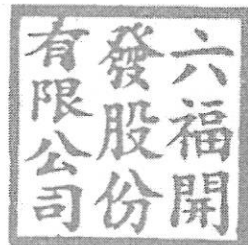 六福開
發股份
有限公司